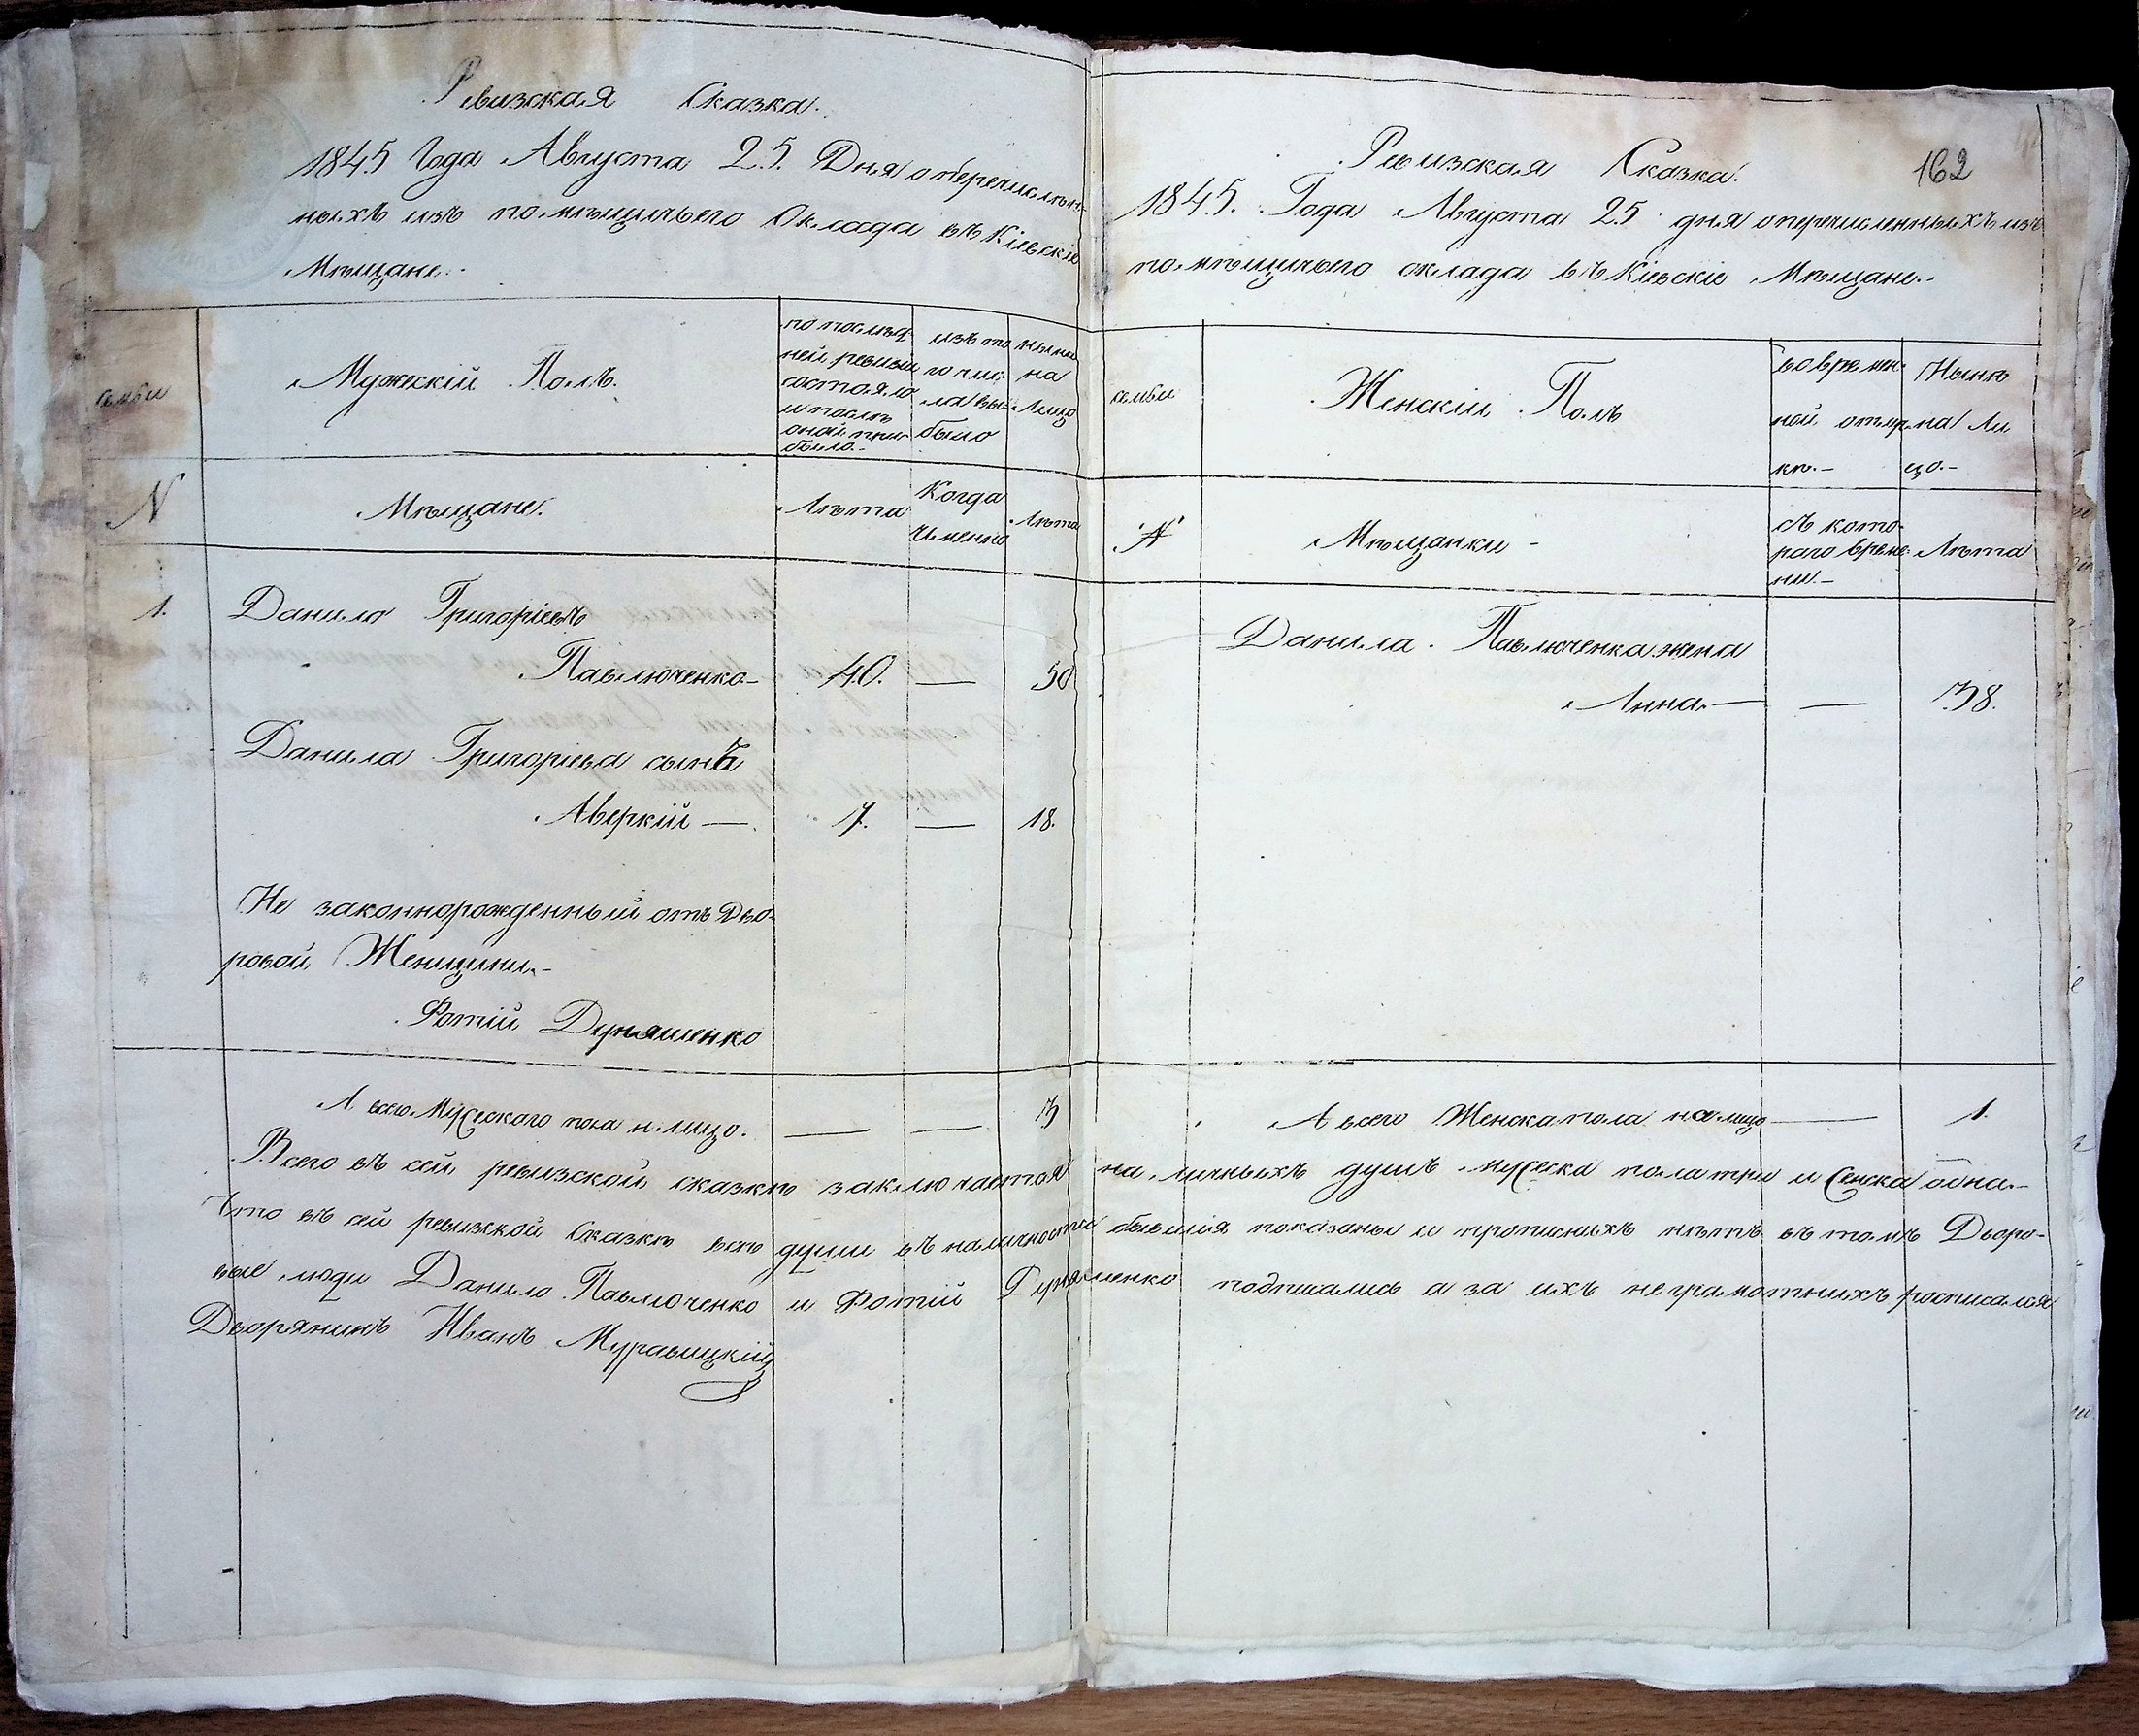 Ревизская Сказка.
1845 Года Августа 25. Дня о перечислен
ныхъ изъ помѣщичьего Оклада въ Кіевскіе
Мѣщане.
семьи
Мужескій Полъ.
по послѣд
ней ревизіи
состояло
и послѣ
оной при
было.-
изъ то
го чис
ла вы
было
нынѣ
на
Лицо
N
Мѣщане.
Лѣта
Когда
именно
Лѣта
1. Данило Григоріевъ
Павлюченко.- 40. — 50
Данила Григорьева сынъ
Аверкій — 7. — 18.
Не законнорожденный отъ Дво-
ровой Женщины.-
Фотій Дуняшенко
А всего Мужескаго пола н. лицо. — — 3
162
Ревизская Сказка.
1845. Года Августа 25 дня о перечисленныхъ изъ
помѣщичьего оклада въ Кіевскіе Мѣщане.-
семьи
Женскій Полъ
во времен
ной отлуч
кѣ.-
Нынѣ
на Ли
цо.-
N
Мѣщанки -
съ кото-
раго време-
ни.-
Лѣта
Данила Павлюченка жена
Анна.— — 38.
А всего Женска пола на лицо — 1.
Всего въ сей ревизской сказкѣ заключается на личныхъ душъ мужеска пола три и Женска одна.-
Что въ сей ревизской Сказкѣ всѣ души въ наличности бывшія показаны и прописныхъ нѣтъ въ томъ Дворо-
вые люди Данило Павлюченко и Фотій Дуняшенко подписались а за ихъ неграмотныхъ росписался
Дворянинъ Иванъ Муравицкій